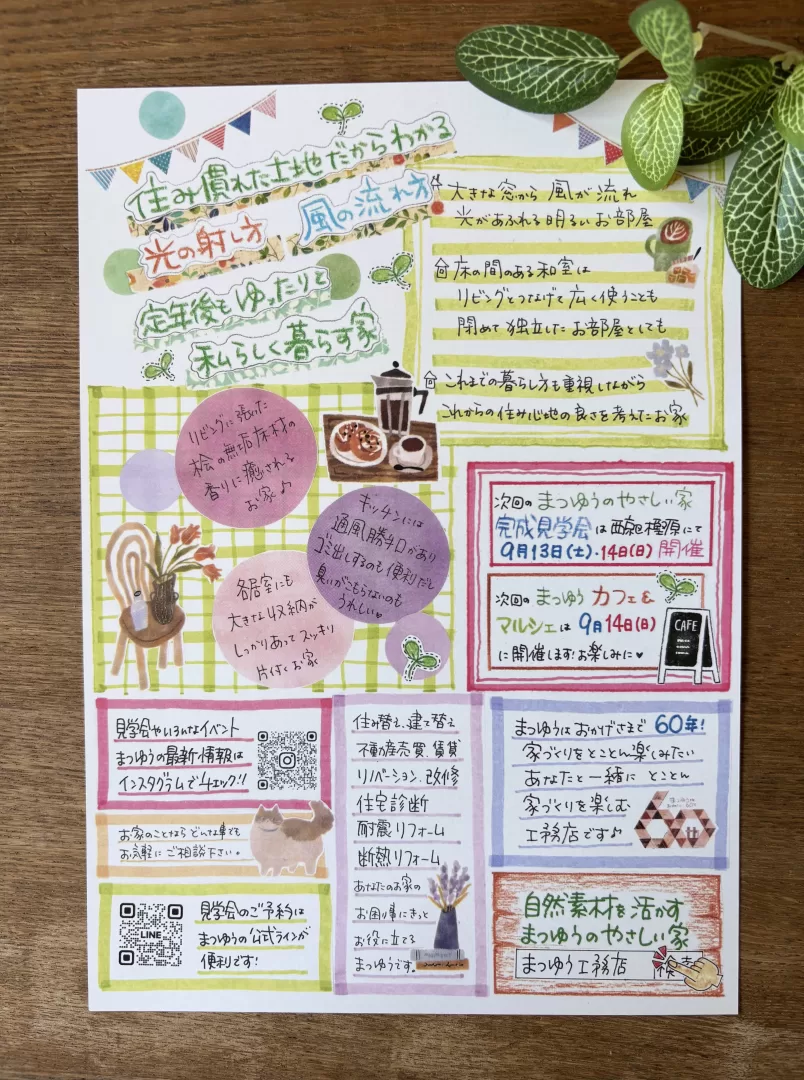 住み慣れた土地だからわかる
光の射し方
風の流れ方
定年後もゆったりと
私らしく暮らす家
大きな窓から 風が流れ
光があふれる明るいお部屋
床の間のある和室は
リビングとつなげて広く使うことも
閉めて独立したお部屋としても
これまでの暮らし方も重視しながら
これからの住み心地の良さを考えたお家
リビングに張った
桧の無垢床材の
香りに癒される
お家♪
キッチンには
通風勝手口があり
ゴミ出しするのも便利だし
臭いがこもらないのも
うれしい
各居室にも
大きな収納が
しっかりあってスッキリ
片付くお家
次回の まつゆうのやさしい家
完成見学会は 橿原にて
9月13日(土)・14日(日) 開催
次回の まつゆう カフェ&
マルシェは 9月14日(日)
に開催します!お楽しみに♥
CAFE
見学会やいろんなイベント
まつゆうの最新情報は
インスタグラムでチェック!!
お家のことなら どんな事でも
お気軽に ご相談下さい。
LINE
見学会のご予約は
まつゆうの公式ラインが
便利です!
住み替え、建て替え
不動産売買、賃貸
リノベーション、改修
住宅診断
耐震リフォーム
断熱リフォーム
あなたのお家の
お困り事にきっと
お役に立てる
まつゆうです。
まつゆうは おかげさまで 60年!
家づくりをとことん楽しみたい
あなたと一緒に とことん
家づくりを楽しむ
工務店です♪
60
自然素材を活かす
まつゆうのやさしい家
まつゆう工務店 検索